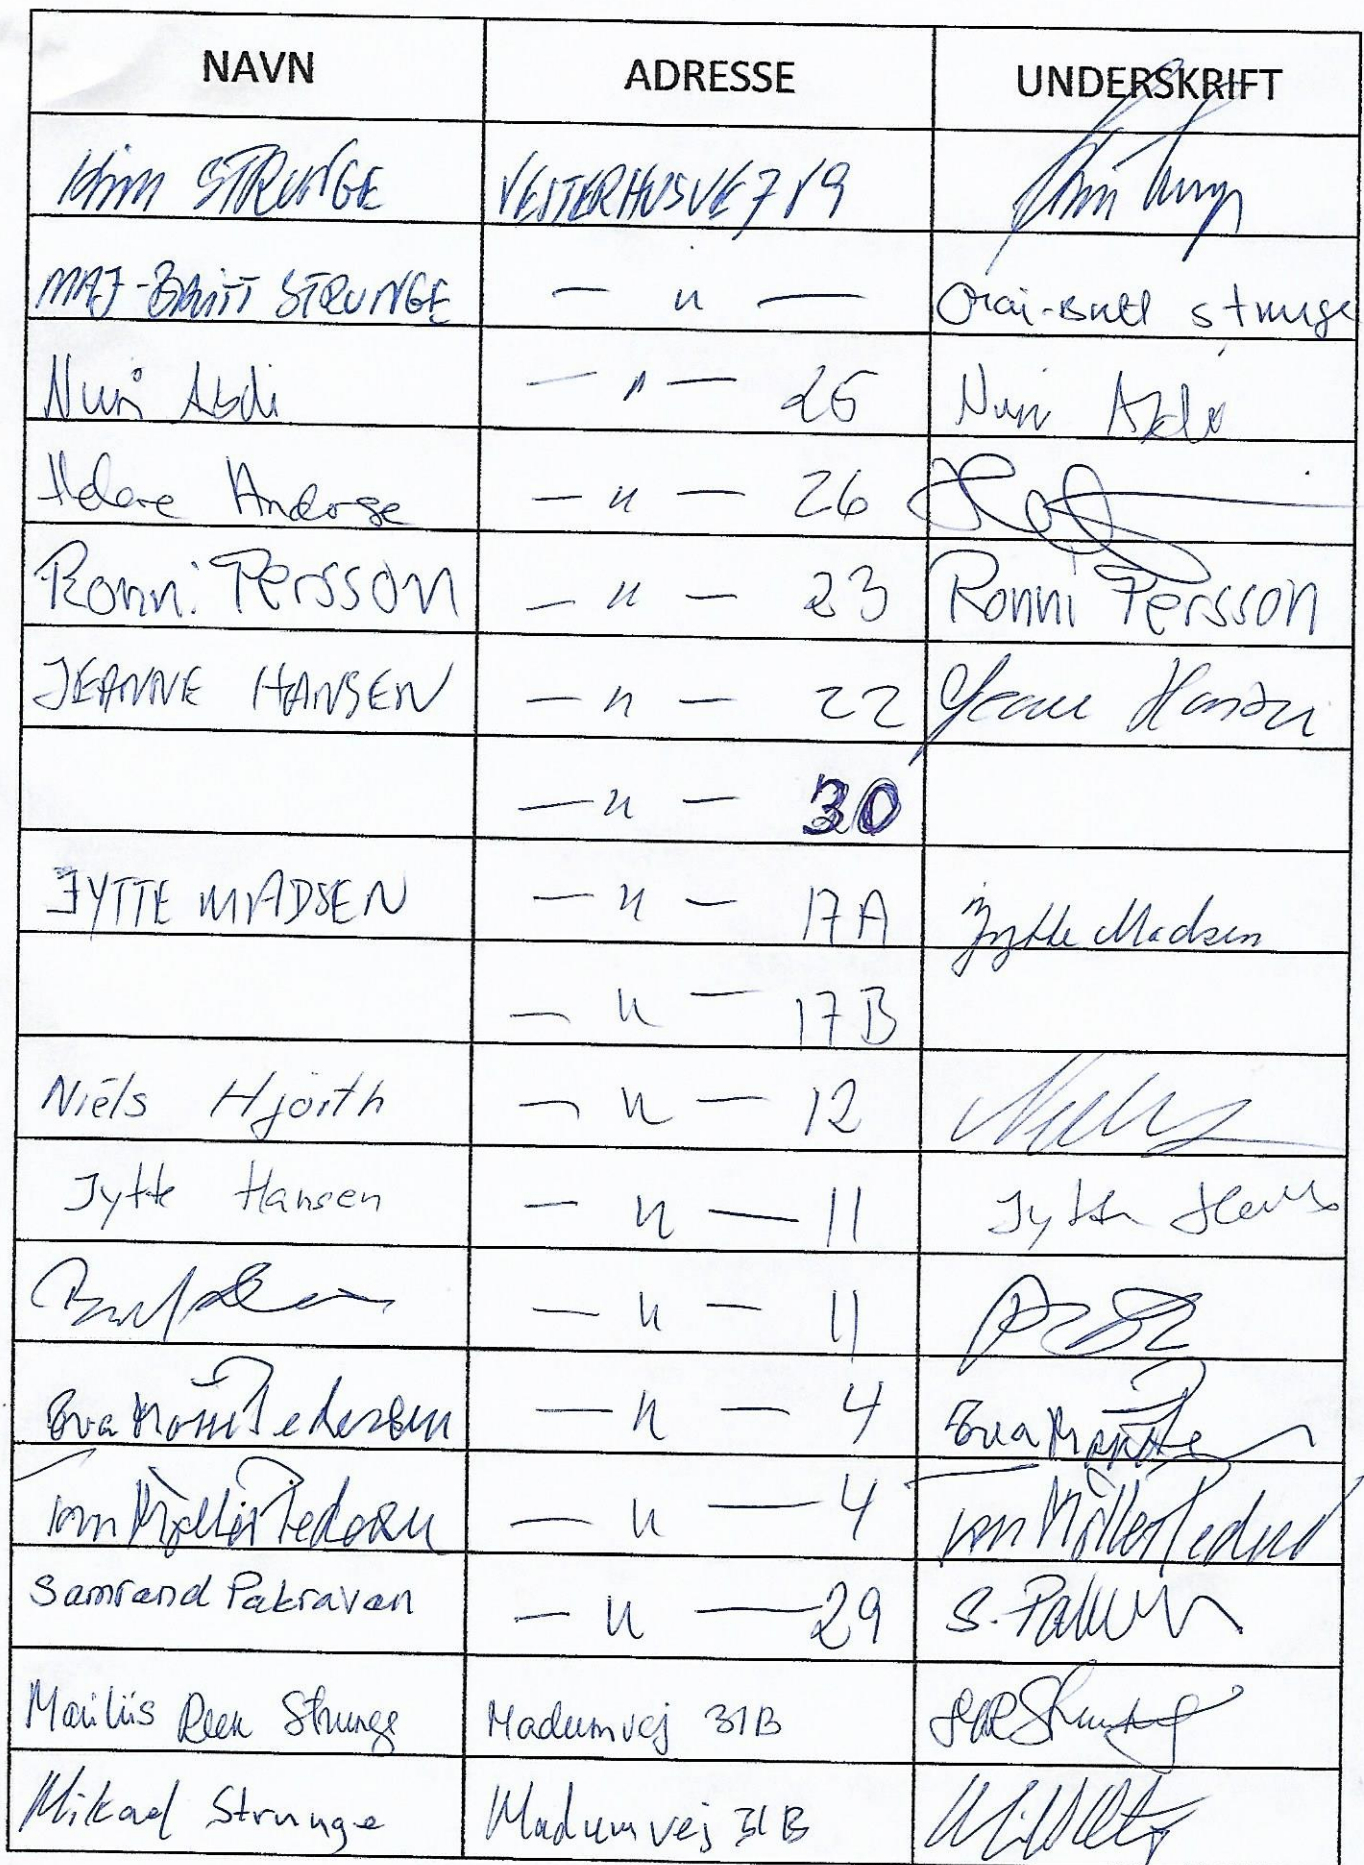 NAVN ADRESSE UNDERSKRIFT
Kim STRUNGE VESTERHUSVEJ 19
MAJ-BRITT STRUNGE — " — Maj-Britt Strunge
Nuri Abdi — " — 26 Nuri Abdi
Helene — " — 26
Ronni Persson — " — 23 Ronni Persson
JEANNE HANSEN — " — 22 Jeanne Hansen
— " — 30
JYTTE MADSEN — " — 17A Jytte Madsen
— " — 17B
Niels Hjorth — " — 12
Jytte Hansen — " — 11 Jytte Hansen
— " — 11
Eva Pedersen — " — 4 Eva
Møller Pedersen — " — 4 Møller Pedersen
Samrand Pakravan — " — 29 S. Pakravan
Strunge Madumvej 31B
Mikael Strunge Madumvej 31B